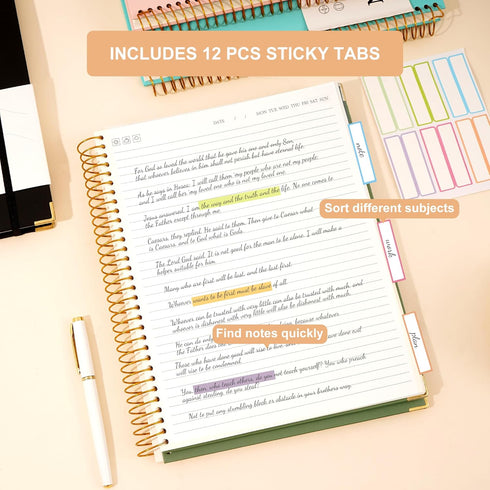 INCLUDES 12 PCS STICKY TABS
DATE / / MON TUE WED THU FRI SAT SUN
For God so loved the world that he gave his one and only Son,
that whoever believes in him shall not perish but have eternal life.
As he says in Hosea: I will call them my people who are not my people;
and I will call her my loved one who is not my loved one.
Jesus answered, I am the way and the truth and the life. No one comes to
the Father except through me.
Caesars, they replied. He said to them, Then give to Caesar what
is Caesars, and to God what is Gods.
The Lord God said, It is not good for the man to be alone. I will make a
helper suitable for him.
Many who are first will be last, and the last first.
Whoever wants to be first must be slave of all.
Whoever can be trusted with very little can also be trusted with much,
and whoever is dishonest with very little will also be dishonest with much.
He can do only because whatever
the Father does
Those who have done good will rise to live, and those who have done evil
will rise to be condemned.
You, then, who teach others, do you not teach yourself? You who preach
against stealing, do you steal?
Not to put any stumbling block or obstacle in your brothers way.
note
work
plan
Sort different subjects
Find notes quickly